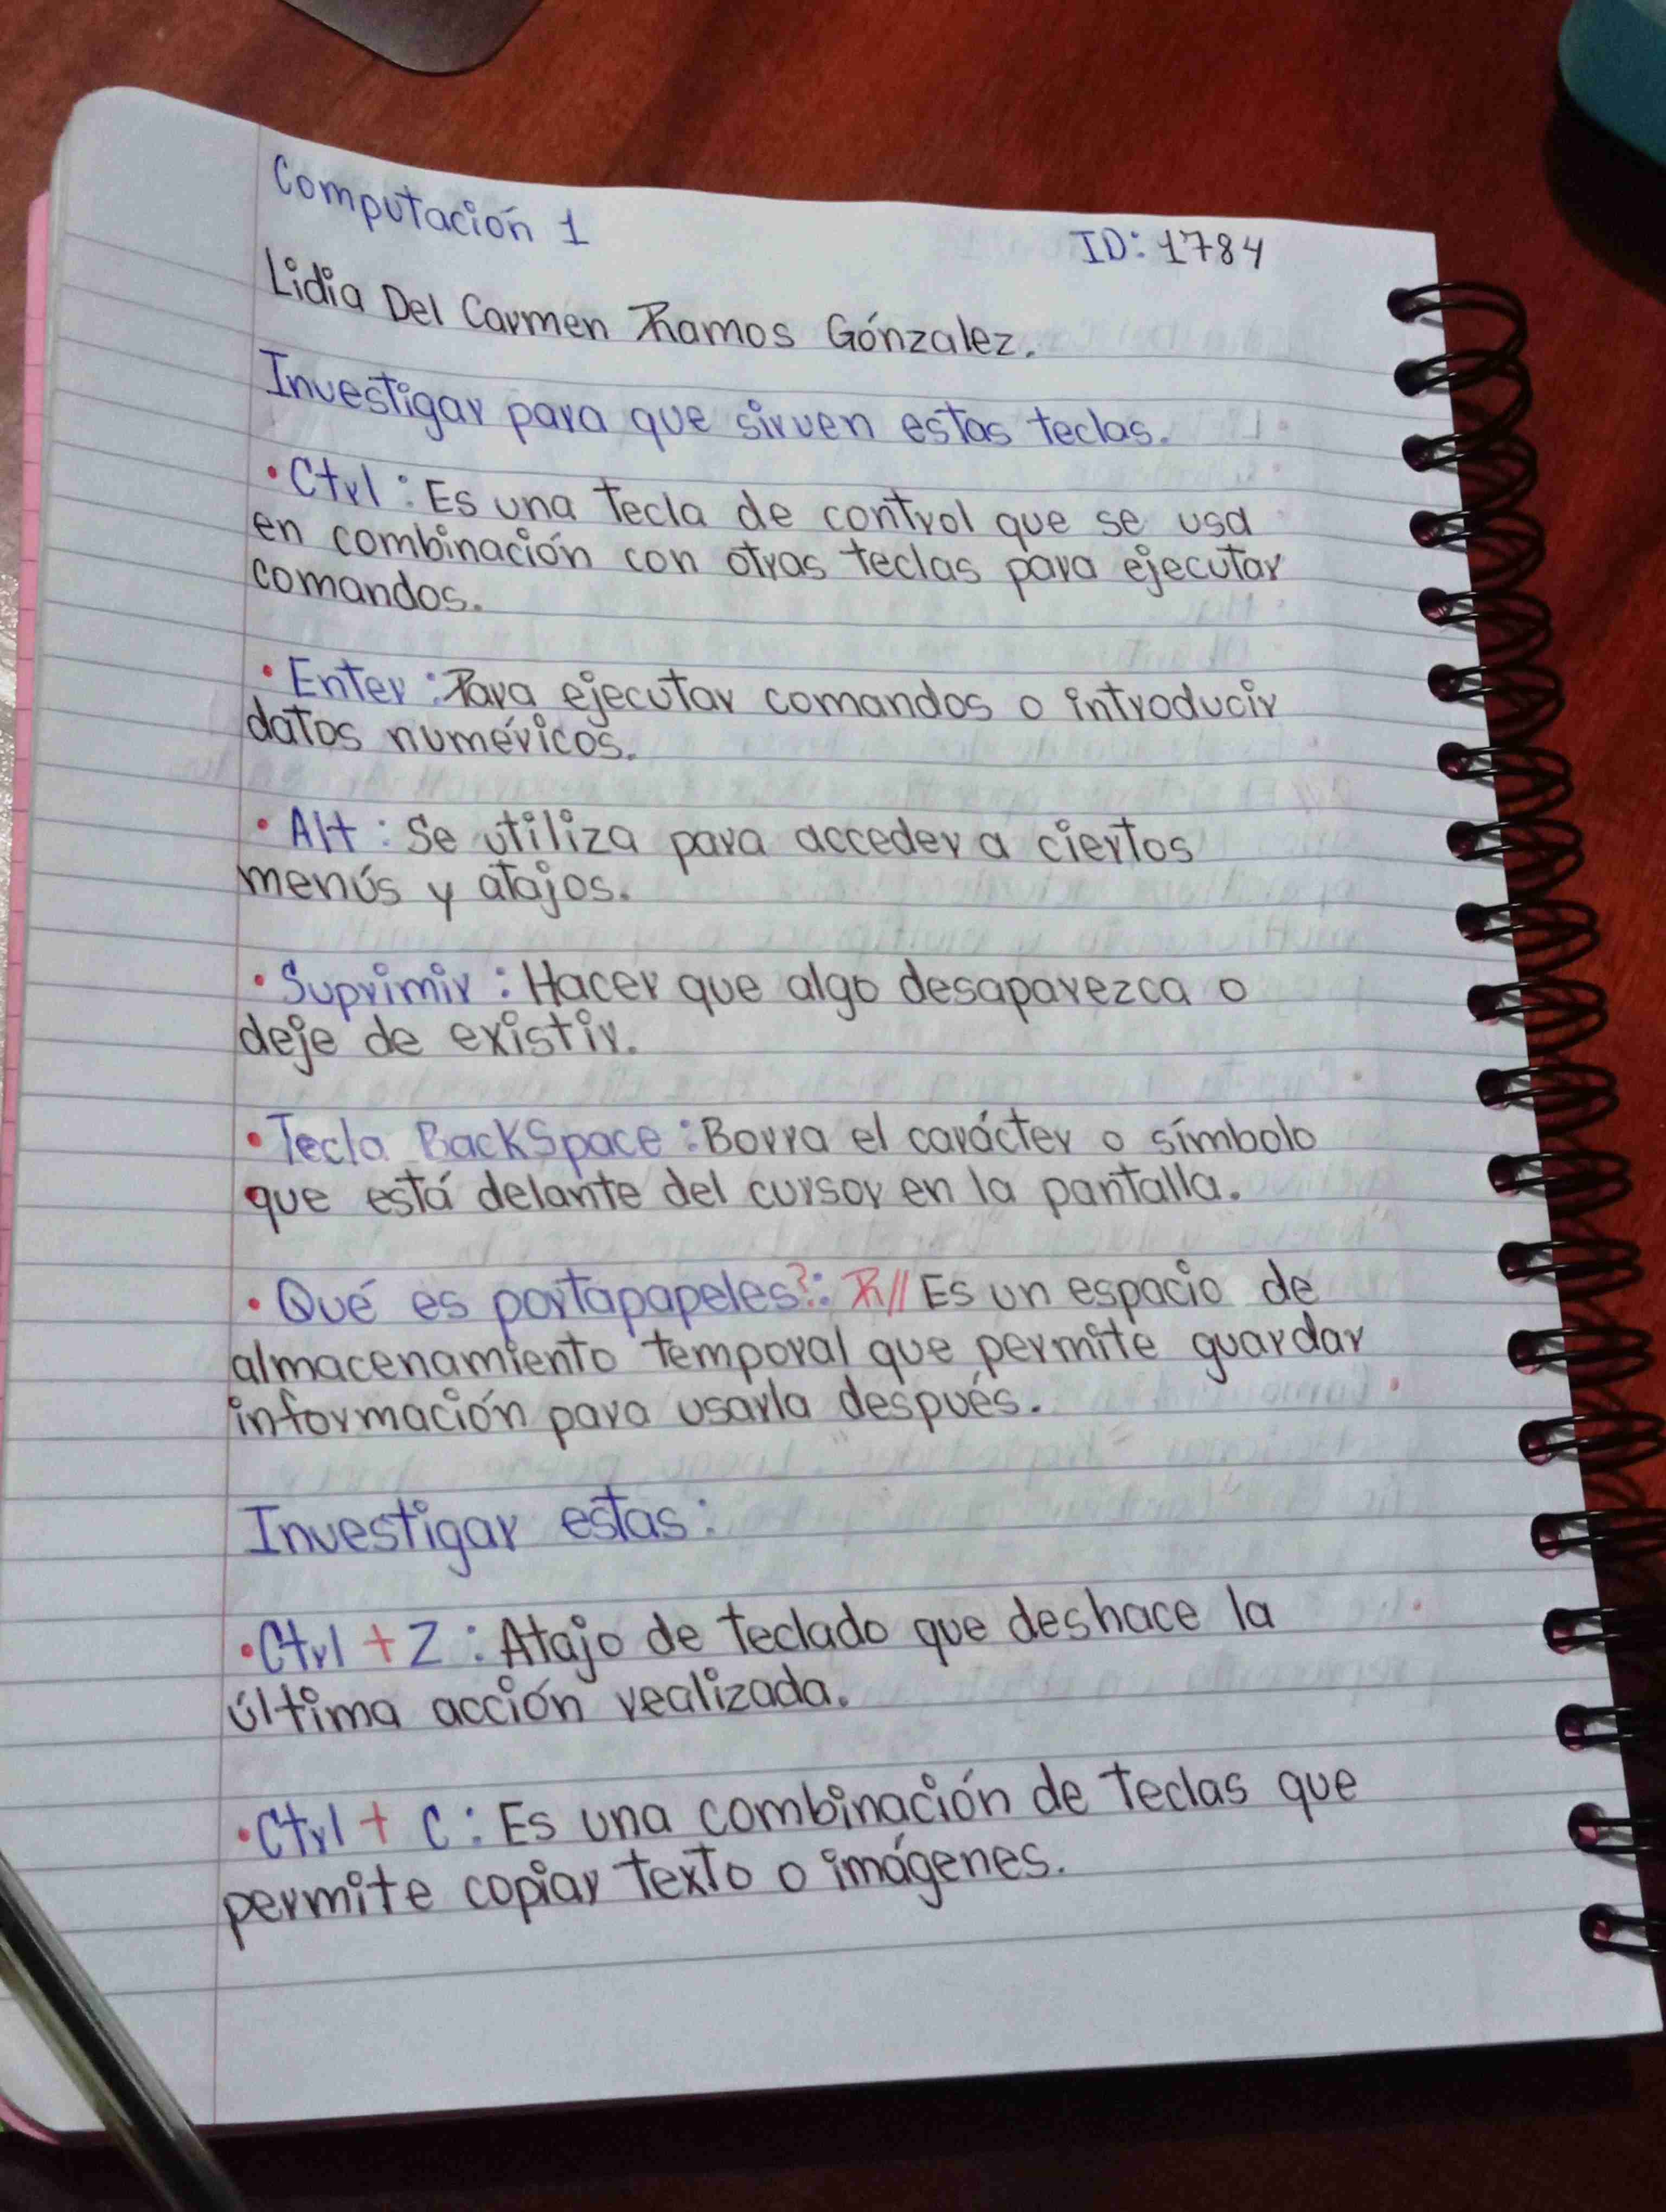 Computación 1
ID: 1784
Lidia Del Carmen Ramos Gónzalez.
Investigar para que sirven estas teclas.
• Ctrl: Es una tecla de control que se usa
en combinación con otras teclas para ejecutar
comandos.
• Enter: Para ejecutar comandos o introducir
datos numéricos.
• Alt: Se utiliza para acceder a ciertos
menús y atajos.
• Suprimir: Hacer que algo desaparezca o
deje de existir.
• Tecla BackSpace: Borra el carácter o símbolo
que está delante del cursor en la pantalla.
• Qué es portapapeles?: R// Es un espacio de
almacenamiento temporal que permite guardar
información para usarla después.
Investigar estas:
• Ctrl + Z: Atajo de teclado que deshace la
última acción realizada.
• Ctrl + C: Es una combinación de teclas que
permite copiar texto o imágenes.